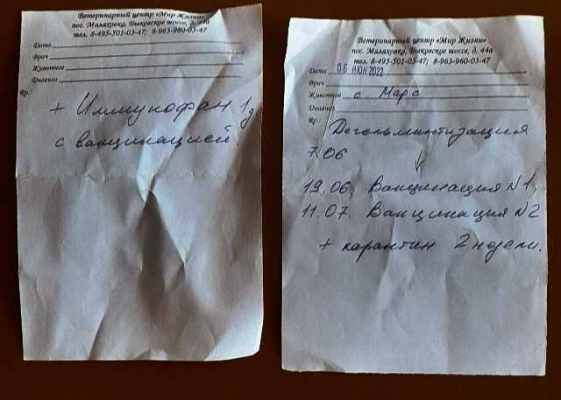 Ветеринарный центр «Мир Жизни»
пос. Малаховка, Быковское шоссе, д. 44а
тел. 8-495-501-03-47; 8-963-960-03-47
Дата
Врач
Животное
Диагноз
Rp.:
+ Иммунофан 1 д
с вакцинацией
Ветеринарный центр «Мир Жизни»
пос. Малаховка, Быковское шоссе, д. 44а
тел. 8-495-501-03-47; 8-963-960-03-47
Дата 06 ИЮН 2023
Врач
Животное с. Марс
Диагноз
Rp.:
Дегельминтизация
7.06
↓
19.06. Вакцинация N1
11.07. Вакцинация N2
+ карантин 2 недели.